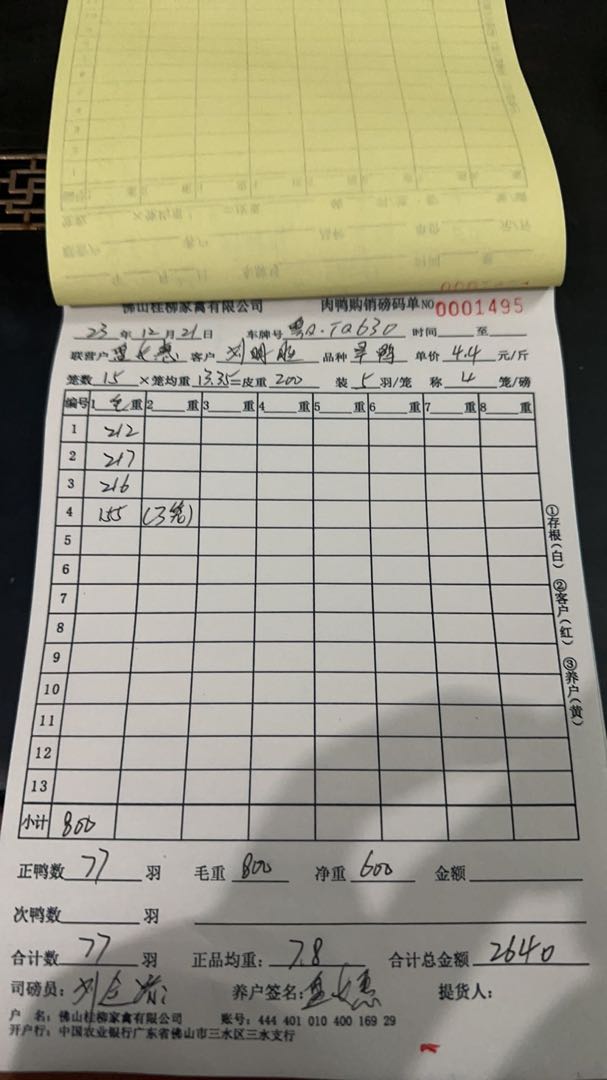 佛山桂柳家禽有限公司 肉鸭购销磅码单 NO 0001495
23 年 12 月 21 日 车牌号 粤A·TQ630 时间 至
联营户 客户 品种 旱鸭 单价 4.4 元/斤
笼数 15 ×笼均重 13.35 =皮重 200 装 5 羽/笼 称 4 笼/磅
编号 1 毛重 2 重 3 重 4 重 5 重 6 重 7 重 8 重
1 212
2 217
3 216
4 155 (3笼)
5
6
7
8
9
10
11
12
13
小计 800
①存根(白) ②客户(红) ③养户(黄)
正鸭数 77 羽 毛重 800 净重 600 金额
次鸭数 羽
合计数 77 羽 正品均重: 7.8 合计总金额 2640
司磅员: 刘 养户签名: 提货人:
户 名: 佛山桂柳家禽有限公司 账号: 444 401 010 400 169 29
开户行: 中国农业银行广东省佛山市三水区三水支行